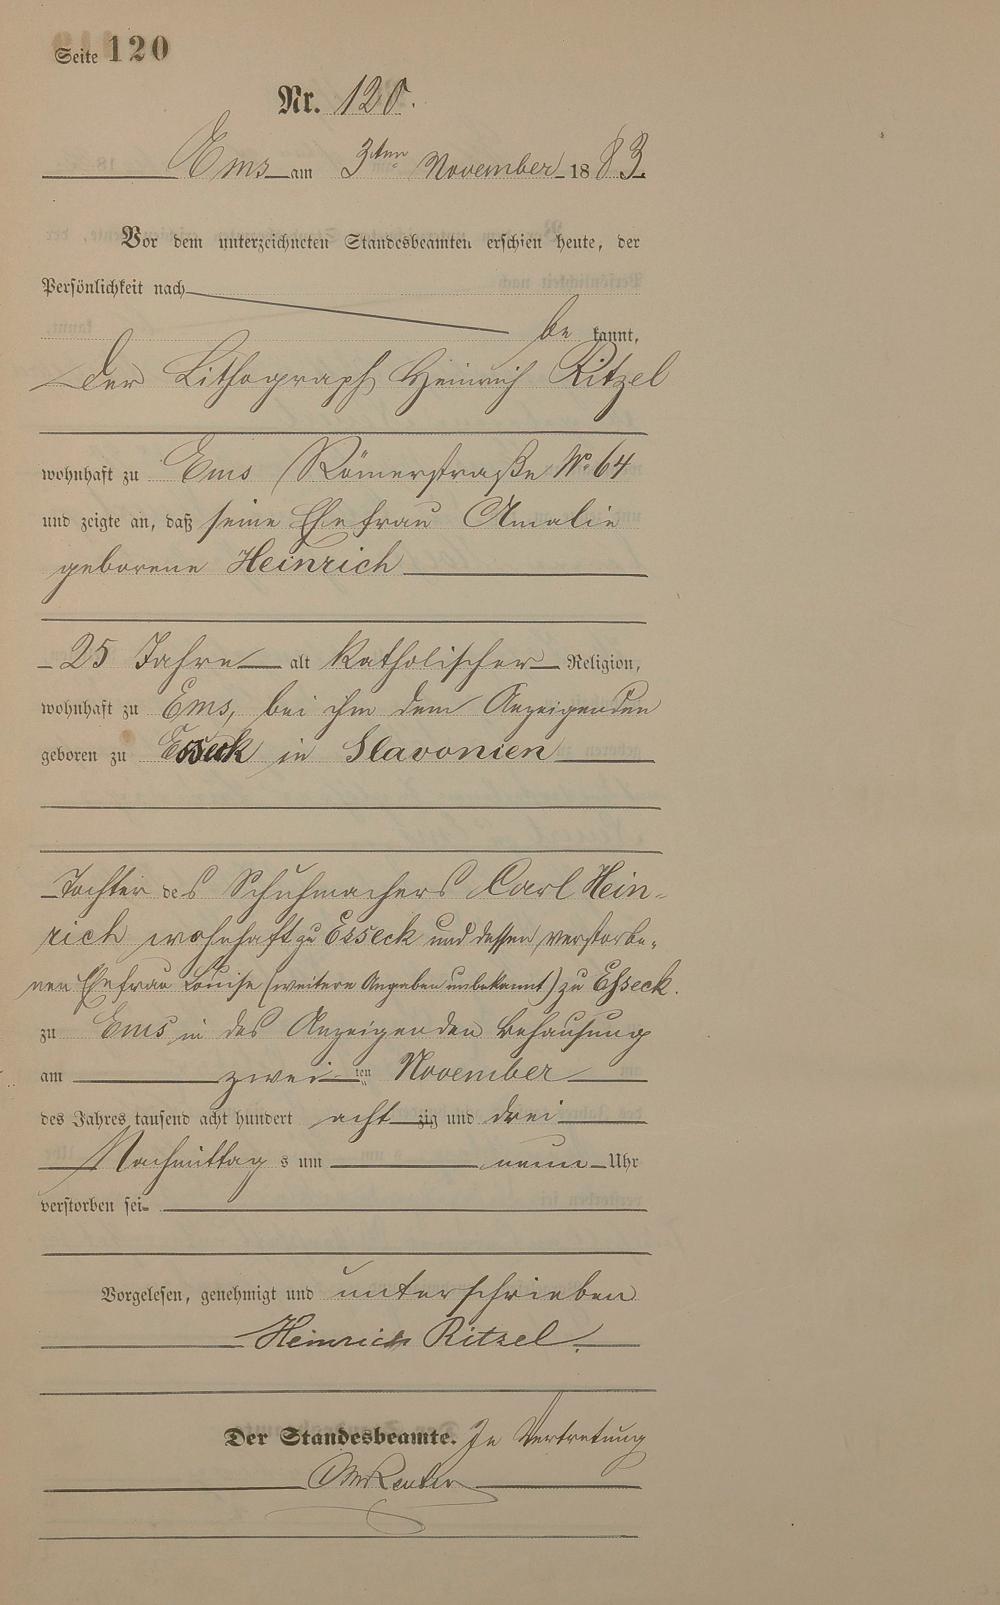 Seite 120
Nr. 120.
Ems am 3ten November 1883.
Vor dem unterzeichneten Standesbeamten erschien heute, der
Persönlichkeit nach
be kannt,
der Lithograph Heinrich Ritzel
wohnhaft zu Ems Römerstraße No 64
und zeigte an, daß seine Ehefrau Amalie
geborene Heinrich
25 Jahre alt katholischer Religion,
wohnhaft zu Ems, bei ihm dem Anzeigenden
geboren zu Esseck in Slavonien
Tochter des Schuhmachers Carl Hein-
rich wohnhaft zu Esseck und dessen verstorbe-
nen Ehefrau Louise (weitere Angaben unbekannt) zu Esseck.
zu Ems in des Anzeigenden Behausung
am zwei ten November
des Jahres tausend acht hundert acht zig und drei
Nachmittag s um neun Uhr
verstorben sei
Vorgelesen, genehmigt und unterschrieben
Heinrich Ritzel.
Der Standesbeamte. In Vertretung